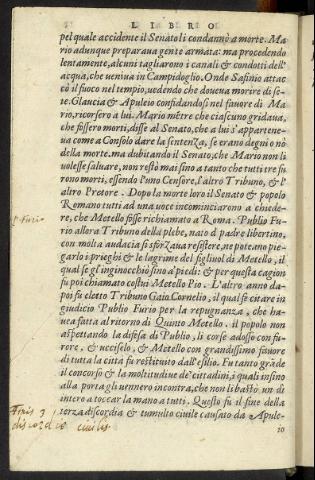 LIBRO
pel quale accidente il Senato li condannò a morte. Ma
rio adunque preparaua gente armata: ma procedendo
lentamente, alcuni tagliarono i canali & condotti dell'
acqua, che ueniua in Campidoglio. Onde Safinio attac
cò il fuoco nel tempio, uedendo che doueua morire di se-
te. Glaucia & Apuleio confidandosi nel fauore di Ma
rio, ricorsero a lui. Mario mẽtre che ciascuno gridaua,
che fossero morti, disse al Senato, che a lui s'appartene-
ua come a Consolo dare la sentenza, se erano degni o nò
della morte. ma dubitando il Senato, che Mario non li
uolesse saluare, non restò mai sino a tanto che tutti tre fu
rono morti, essendo l'uno Censore, l'altro Tribuno, & l'
altro Pretore. Dopo la morte loro il Senato & popolo
Romano tutti ad una uoce incominciarono a chiede-
re, che Metello fosse richiamato a Roma. Publio Fu-
rio allora Tribuno della plebe, nato di padre libertino,
con molta audacia si sforzaua resistere, ne potẽano pie-
garlo i prieghi & le lagrime del figliuol di Metello, il
qual se gl'inginocchiò fino a' piedi: & per questa cagion
fu poi chiamato costui Metello Pio. L'altro anno da-
poi fu eletto Tribuno Gaio Cornelio, il qual fe citare in
giudicio Publio Furio per la repugnanza, che ha-
uea fatta al ritorno di Quinto Metello. il popolo non
aspettando la difesa di Publio, li corse adosso con fu-
rore, & ucciselo, & Metello con grandissimo fauore
di tutta la città fu restituito dall'esilio. Fu tanto grãde
il concorso & la moltitudine de' cittadini, i quali insino
alla porta gli uennero incontra, che non li bastò un dì
intero a toccar la mano a tutti. Questo fu il fine della
terza discordia & tumulto ciuile causato da Apule-
io
P. Furio
Finis 3
discordiæ ciuilis